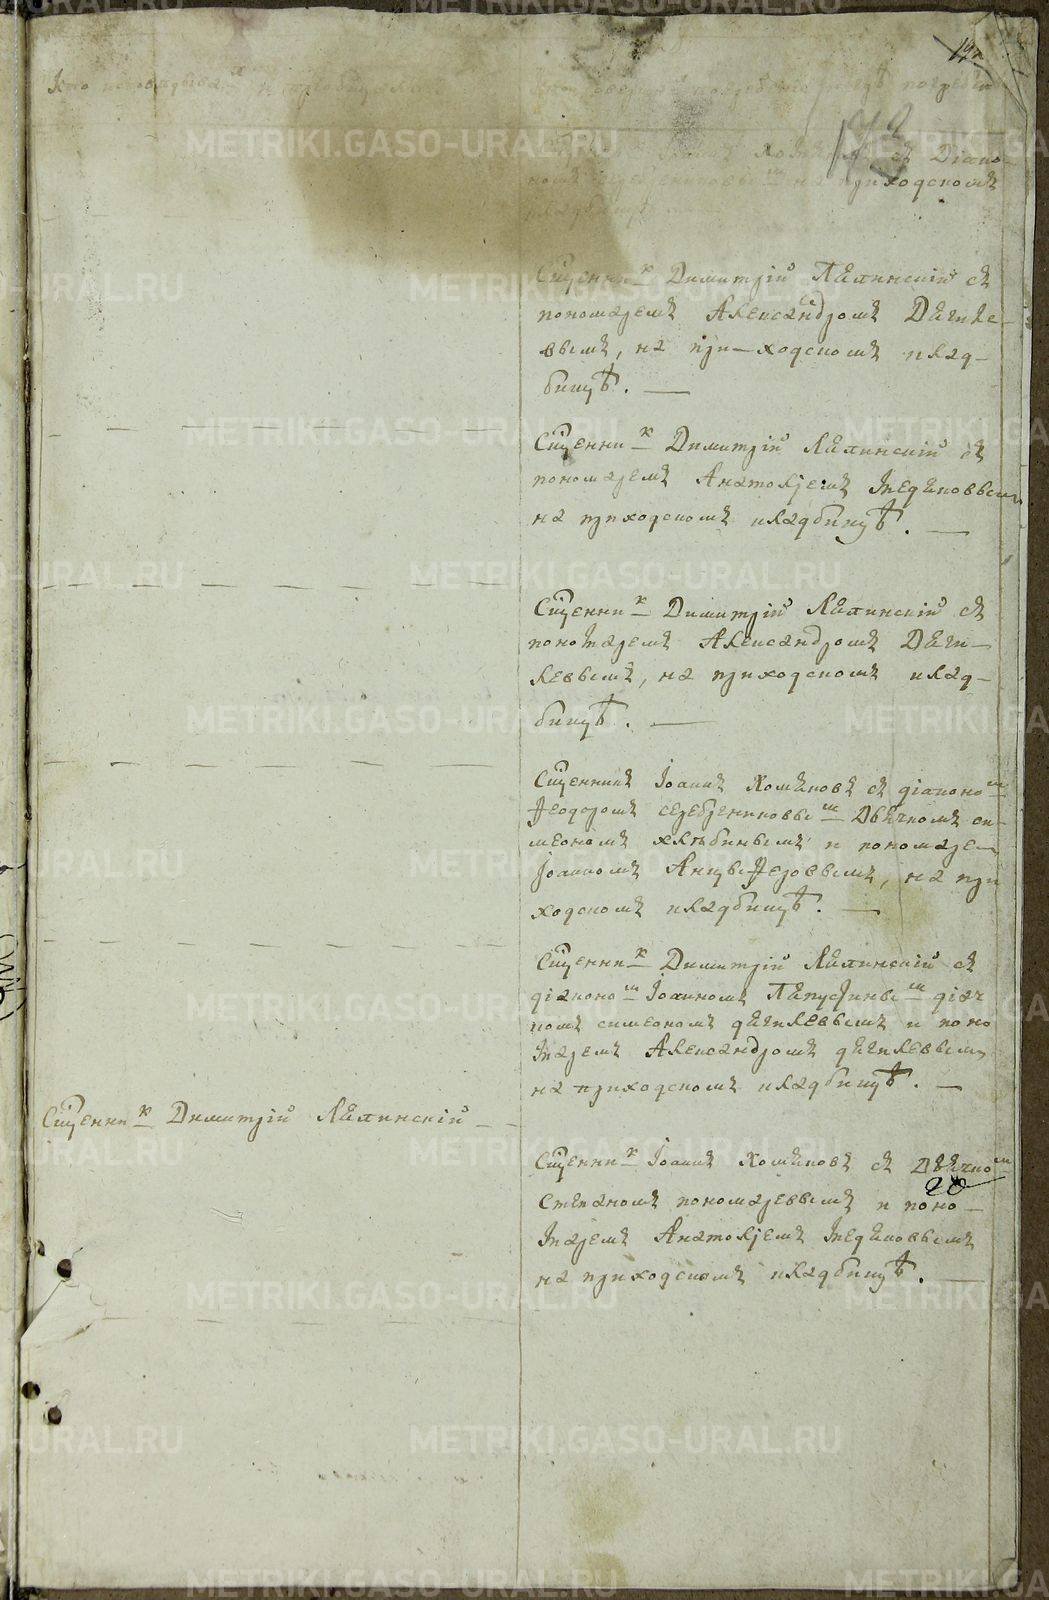 Кто исповѣдывал и пріобщалъ
Кто совершалъ погребеніе и гдѣ погребены
142
Іоаннъ Хомяковъ съ Діако-
номъ на приходскомъ
кладбищѣ
Сщенник Димитрій Ляпинскій съ
пономаремъ Александромъ Дягиле-
вымъ, на при-ходскомъ клад-
бищѣ. —
Сщенник Димитрій Ляпинскій съ
пономаремъ Анатоліемъ
на приходскомъ кладбищѣ. —
Сщенник Димитрій Ляпинскій съ
пономаремъ Александромъ Дяги-
левымъ, на приходскомъ клад-
бищѣ. —
Сщенникъ Іоаннъ Хомяковъ съ діаконом
Феодоромъ Серебренниковым Дьячкомъ си-
меономъ хлѣбинымъ и пономарем
Іоанномъ Анцыферовымъ, на при
ходскомъ кладбищѣ. —
Сщенник Димитрій Ляпинскій съ
діаконом Іоанномъ дьяч
комъ симеономъ дягилевымъ и поно
маремъ Александромъ дягилевымъ
на приходскомъ кладбищѣ. —
Сщенник Димитрій Ляпинскій
Сщенник Іоаннъ Хомяковъ съ Дьячком
20
Степаномъ пономаревымъ и поно-
маремъ Анатоліемъ
на приходскомъ кладбищѣ. —
METRIKI.GASO-URAL.RU